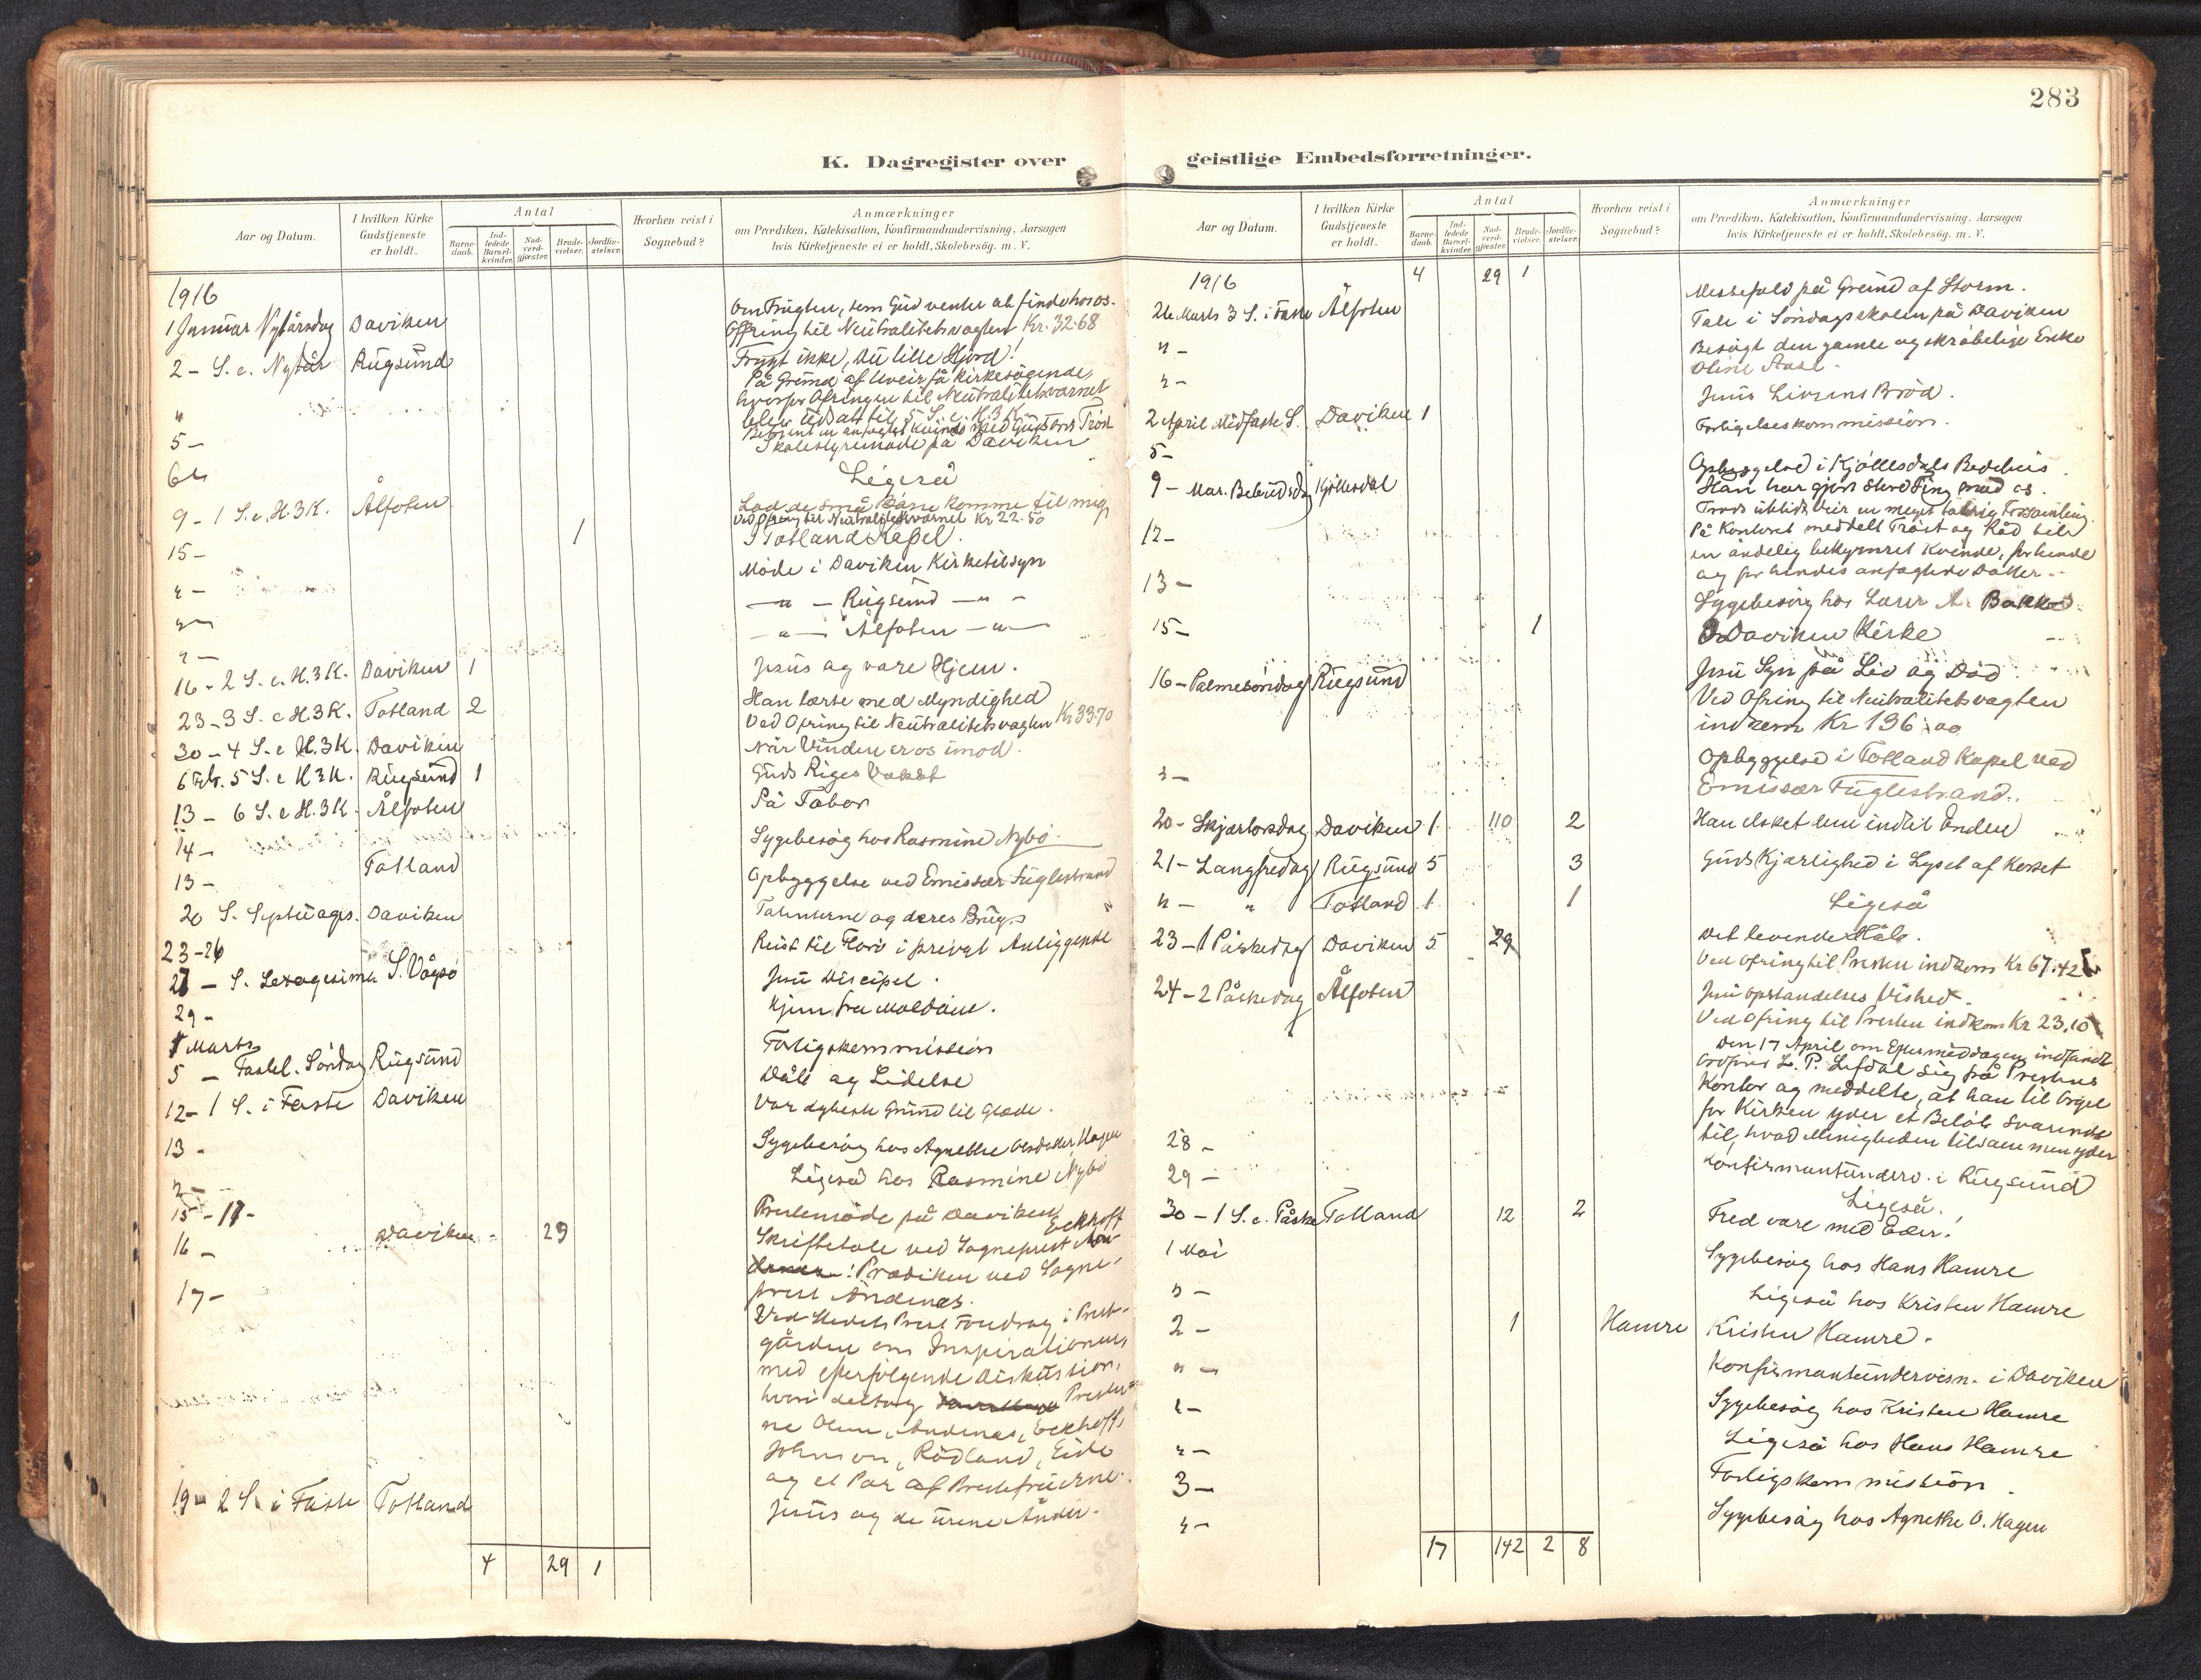 283
K. Dagregister over geistlige Embedsforretninger.
Aar og Datum.
I hvilken Kirke Gudstjeneste er holdt.
Antal
Barne-daab.
Ind-ledede Barsel-kvinder.
Nad-verd-gjæster.
Brude-vielser.
Jordfæ-stelser.
Hvorhen reist i Sognebud?
Anmærkninger
om Prædiken, Katekisation, Konfirmandundervisning, Aarsagen
hvis Kirketjeneste ei er holdt, Skolebesøg. m. V.
1916
1 Januar Nytårsdag Daviken Om Frugten, som Gud venter at finde hos os.
Ofring til Neutralitetsvagten Kr. 32.68
2 - S. e. Nytår Rugsund Frygt ikke, Du lille Hjord!
På Grund af Uveir få Kirkesøgende,
hvorfor Ofringen til Neutralitetsvarnet
blev udsatt til 5 S. e. H. 3 K.
"
5 - Skolestyremøde på Daviken
6te Ligeså
9 - 1 S. e. H. 3 K. Ålfoten Lad de små Børn komme til mig
Ved Ofring til Neutralitetsværnet Kr 22.50
15 - 1 I Totland Kapel.
" - Møde i Daviken Kirketilsyn
" - — " — Rugsund — " —
" - — " — Ålfoten — " —
16 - 2 S. e. H. 3 K. Daviken 1 Jesus og vare Hjem.
23 - 3 S. e H. 3 K. Totland 2 Han lærte med Myndighed
Ved Ofring til Neutralitetsvagten Kr 33.70
30 - 4 S. e H. 3 K. Daviken Når Vinden er os imod.
6 Febr. 5 S. e H 3 K. Rugsund 1 Guds Riges Vækst
13 - 6 S. e H. 3 K. Ålfoten På Tabor
14 - Sygebesøg hos Rasmine Nybø.
13 - Totland Opbyggelse ved Emissær Fuglestrand
20 S. Septuages. Daviken Talenterne og deres Brug
23-26 Reist til Florø i privat Anliggende
27 - S. Sexagesima S. Vågsø Jesu Discipel.
29 - Hjem fra Moldøen.
1 Marts Forligskommission
5 - Fastel. Søndag Rugsund Dåb og Lidelse
12 - 1 S. i Faste Daviken Vor dybeste Grund til Glæde.
13 - Sygebesøg hos Agnethe Olsdatter Hagen
" - Ligeså hos Rasmine Nybø
15 - 17 - Prestemøde på Daviken
16 - Daviken 29 Skriftetale ved Sogneprest Eckhoff
Prædiken ved Sogne-
prest Andenæs.
17 - Ved Stedets Prest Foredrag i Prest-
gården om Inspirationen
med efterfølgende Diskussion,
hvori deltog Prester-
ne Olsen, Andenæs, Eckhoff,
Johnson, Rødland, Eide
og et Par af Prestefruerne.
19 - 2 S. i Faste Totland Jesus og de urene Ånder.
4 29 1
Aar og Datum.
I hvilken Kirke Gudstjeneste er holdt.
Antal
Barne-daab.
Ind-ledede Barsel-kvinder.
Nad-verd-gjæster.
Brude-vielser.
Jordfæ-stelser.
Hvorhen reist i Sognebud?
Anmærkninger
om Prædiken, Katekisation, Konfirmandundervisning, Aarsagen
hvis Kirketjeneste ei er holdt, Skolebesøg. m. V.
1916 4 29 1
26 Marts 3 S. i Faste Ålfoten Messefald på Grund af Storm.
" - Tale i Søndagsskolen på Daviken
" - Besøgt den gamle og skrøbelige Enke
Oline Aase.
2 April Midfaste S. Daviken 1 Jesus Livsens Brød.
5 - Forligelseskommission.
9 - Mar. Bebudsdag Kjøllesdal Opbyggelse i Kjøllesdals Bedehus.
Han har gjort store Ting mod os.
Trods ublidt Veir en meget talrig Forsamling.
12 - På Kontoret meddelt Trøst og Råd til
en åndelig bekymret Kvinde, for hende
og for hendes anfægtede Datter.
13 - Sygebesøg hos Lærer A. Bakke.
15 - 1 I Daviken Kirke
16 - Palmesøndag Rugsund Jesu Syn på Liv og Død.
Ved Ofring til Neutralitetsvagten
indkom Kr 136.00
" - Opbyggelse i Totland Kapel ved
Emissær Fuglestrand.
20 - Skjærtorsdag Daviken 1 110 2 Han elsket dem indtil Enden
21 - Langfredag Rugsund 5 3 Guds Kjærlighed i Lyset af Korset
" - " Totland 1 1 Ligeså
23 - 1 Påskedag Daviken 5 29 Det levende Håb.
Ved Ofring til Presten indkom Kr 67.42
24 - 2 Påskedag Ålfoten Jesu Opstandelses Vished.
Ved Ofring til Presten indkom Kr 23.10
Den 17 April om Eftermiddagen indfandt
Ordfører L. P. Lefdal sig på Prestens
Kontor og meddelte, at han til Orgel
for Kirken yder et Beløb svarende
til, hvad Menigheden tilsammen yder
28 - Konfirmantunderv. i Rugsund
29 - Ligeså.
30 - 1 S. e. Påske Totland 12 2 Fred være med Eder!
1 Mai Sygebesøg hos Hans Hamre
" - Ligeså hos Kristen Hamre
2 - 1 Hamre Kristen Hamre.
" - Konfirmantundervisn. i Daviken
" - Sygebesøg hos Kristen Hamre
" - Ligeså hos Hans Hamre
3 - Forligskommission.
" - Sygebesøg hos Agnethe O. Hagen
17 142 2 8